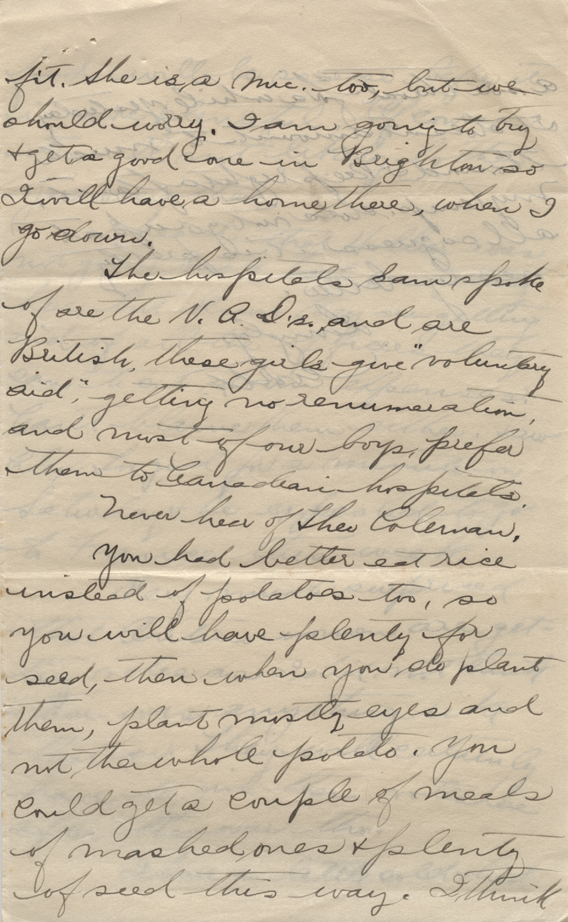 fit. She is, a Mc. too, but we
should worry. I am going to try
+ get a good one in Brighton so
I will have a home there, when I
go down.
The hospitals Sam spoke
of are the V. A. D.s., and are
British, these girls give "voluntary
aid", getting no renumeration,
and most of our boys, prefer
them to Canadian hospitals.
Never hear of Theo Coleman.
You had better eat rice
instead of potatoes too, so
you will have plenty for
seed, then when you do plant
them, plant mostly eyes and
not the whole potato. You
could get a couple of meals
of mashed ones + plenty
of seed this way. I think